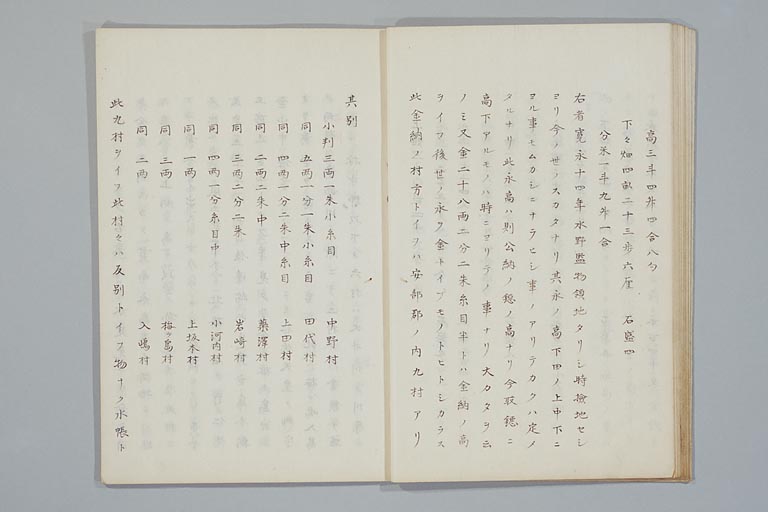 高三斗四舛四合八勺
下々畑四畝二十三歩六厘 石盛四
分米一斗九舛一合
右者寛永十四年水野監物領地タリシ時撿地セシ
ヨリ今ノ世ノスカタナリ其永ノ高下田ノ上中下ニ
ヨル事モムカシニナラヒシ事ノアリテカクハ定ノ
タルナリ此永高ハ則公納ノ穏ノ高ナリ今取穏ニ
高下アルモノハ時ニヨリテノ事ナリ大カタラ云
ノミ又金二十八両二分二朱糸目半トハ金納ノ高
ヲイフ後世ノ永ク金トイフモノトヒトシカラス
此金納ノ村方トイフハ安部郡ノ内九村アリ
其別
小判三両一朱小糸目 中野村
同 五両一分一朱小糸目 田代村
同 四両一分二朱中糸目 上田村
同 二両二朱中 藁澤村
同 三両二分二朱 岩崎村
同 四両一分糸目中 小河内村
同 一両 上坂本村
同 三両 梅ヶ島村
同 二両 入嶋村
此九村ヲイフ此村々ハ反別トイフ物ナク水帳ト